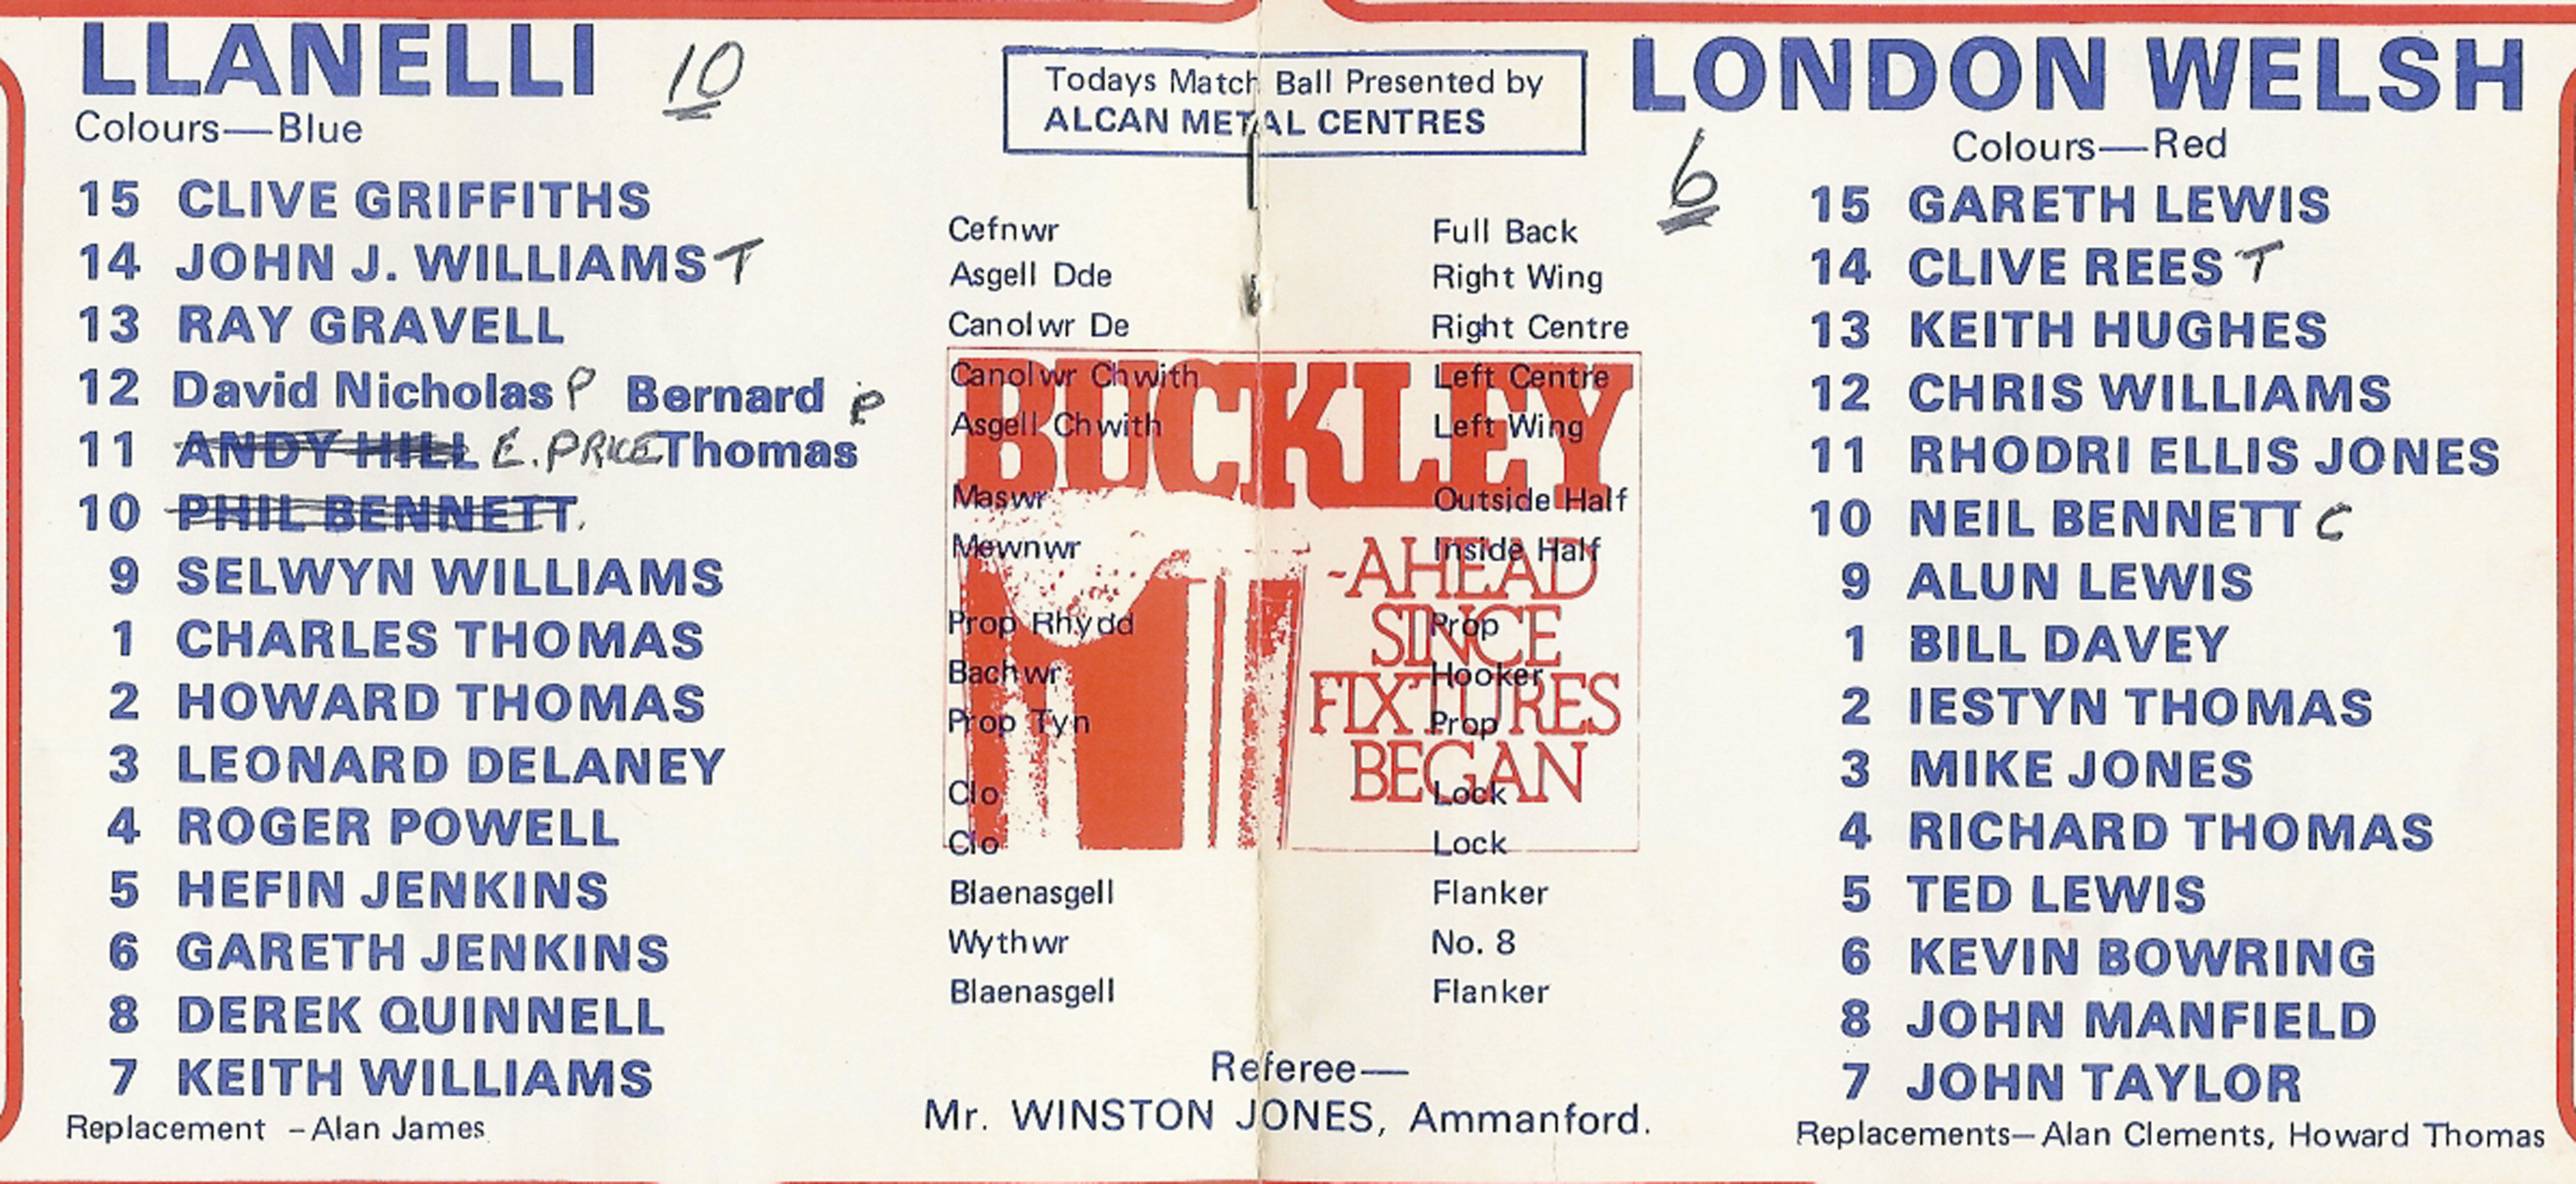 LLANELLI 10
Colours—Blue
15 CLIVE GRIFFITHS
14 JOHN J. WILLIAMS T
13 RAY GRAVELL
12 David Nicholas P Bernard P
11 ANDY HILL E. PRICE Thomas
10 PHIL BENNETT.
9 SELWYN WILLIAMS
1 CHARLES THOMAS
2 HOWARD THOMAS
3 LEONARD DELANEY
4 ROGER POWELL
5 HEFIN JENKINS
6 GARETH JENKINS
8 DEREK QUINNELL
7 KEITH WILLIAMS
Replacement –Alan James
Todays Match Ball Presented by
ALCAN METAL CENTRES
Cefnwr Full Back
Asgell Dde Right Wing
Canolwr De Right Centre
Canolwr Chwith Left Centre
Asgell Chwith Left Wing
Maswr Outside Half
Mewnwr Inside Half
Prop Rhydd Prop
Bachwr Hooker
Prop Tyn Prop
Clo Lock
Clo Lock
Blaenasgell Flanker
Wythwr No. 8
Blaenasgell Flanker
BUCKLEY
-AHEAD
SINCE
FIXTURES
BEGAN
Referee—
Mr. WINSTON JONES, Ammanford.
LONDON WELSH
6
Colours—Red
15 GARETH LEWIS
14 CLIVE REES T
13 KEITH HUGHES
12 CHRIS WILLIAMS
11 RHODRI ELLIS JONES
10 NEIL BENNETT C
9 ALUN LEWIS
1 BILL DAVEY
2 IESTYN THOMAS
3 MIKE JONES
4 RICHARD THOMAS
5 TED LEWIS
6 KEVIN BOWRING
8 JOHN MANFIELD
7 JOHN TAYLOR
Replacements—Alan Clements, Howard Thomas